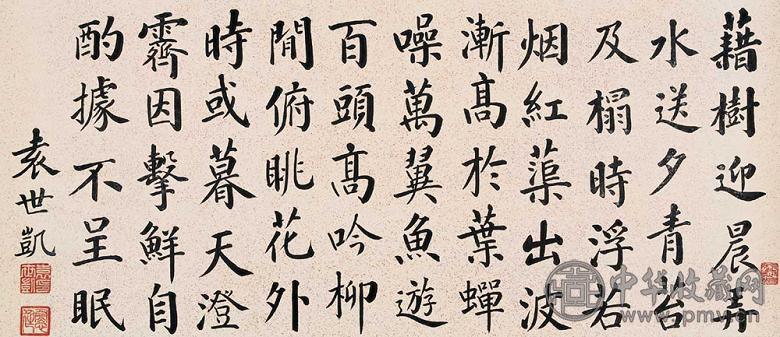 藉樹迎晨弄
水送夕青苔
及榻時浮若
烟紅蕖出波
漸高於葉蟬
噪萬翼魚遊
百頭高吟柳
閒俯眺花外
時或暮天澄
霽因擊鮮自
酌據不呈眠
袁世凱
中华收藏网
www.pmv.cn